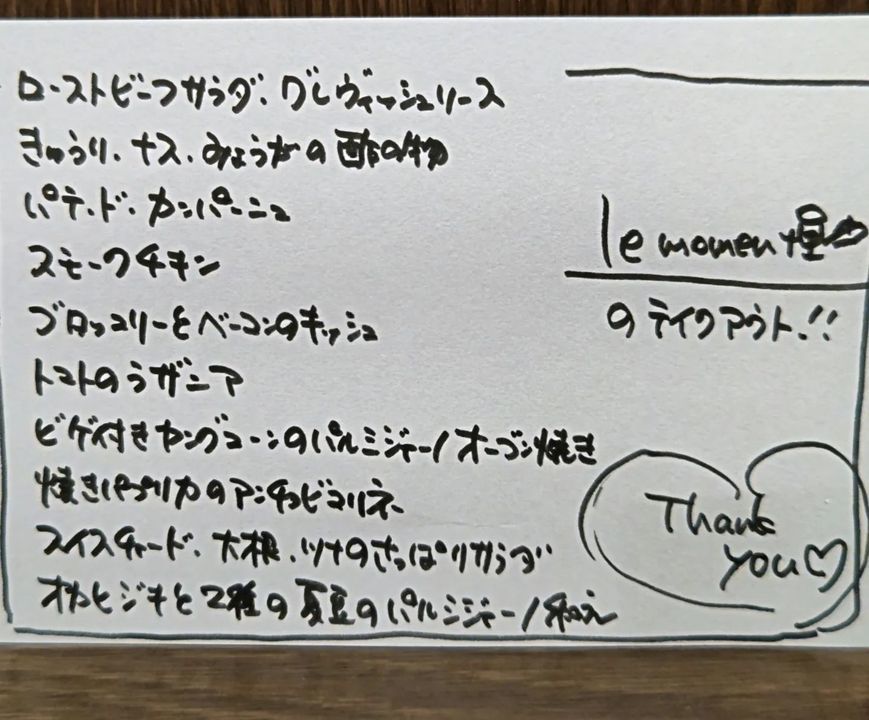 ローストビーフサラダ、グレヴィッシュソース
きゅうり、ナス、みょうがの酢の物
パテ・ド・カンパーニュ
スモークチキン
ブロッコリーとベーコンのキッシュ
トマトのラザニア
ヒゲ付きヤングコーンのパルミジャーノオーブン焼き
焼きパプリカのアンチョビマリネ
スイスチャード、大根、ツナのさっぱりサラダ
オカヒジキと2種の夏豆のパルミジャーノ和え
le momen
のテイクアウト!!
Thank
you♡